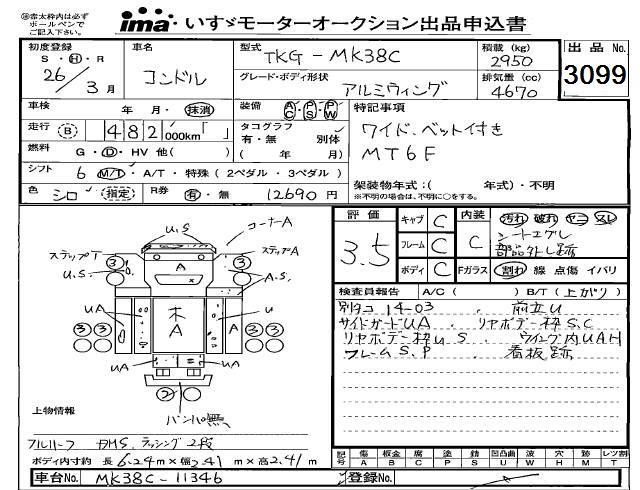 ※赤太枠内は必ず
ボールペンで
ご記入下さい。
ima いすゞモーターオークション出品申込書
初度登録 S・H・R 26 / 3月
車名 コンドル
型式 TKG-MK38C
積載 (kg) 2950
出品 No. 3099
グレード・ボディ形状 アルミウィング
排気量 (cc) 4670
車検 年 月・抹消
装備 AC・PS・PW
特記事項
走行 B 482,000km「 」
タコグラフ 有・無 別体 ( 年 月)
ワイド、ベット付き
燃料 G・D・HV 他( )
MT6F
シフト 6 M/T・A/T・特殊 (2ペダル・3ペダル)
架装物年式:( 年式)・不明
※不明の場合は、不明に○をする。
色 シロ・指定 R券 有・無 12690円
評価 3.5
キャブ C
フレーム C
ボディ C
内装 C
汚れ 破れ ヤニ スレ
シートコゲ穴
部品外し跡
Fガラス 割れ 線 点傷 イバリ
検査員報告 A/C( ) B/T(上がり)
別タコ 14-03 、 前立U
サイドガードUA 、 リヤボデー枠S.C
リヤボデー枠US 、 ウイング内UAH
フレームS.P 、 看板跡
U.S
コーナーA
ステップT ③
U.S
A
ステップA
③
A.S
UA
木 A
U
UA
③③
③③
UA
UA
②
バンパ無
上物情報
フルハーフ
ラッシング2段
ボディ内寸約 長6.24m×幅2.41m×高2.41m
記号 傷 A 板金 B 腐 C 塗 P 錆 S 凹凸曲 U 波 W 穴 H 跡 M レツ割 T
車台No. MK38C-11346
登録No.